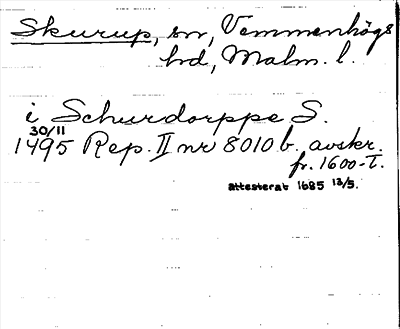 Skurup, sn, Vemmenhögs
hd, Malm. l.
i Schurdorppe S.
30/11
1495 Rep. II nr 8010 b. avskr.
fr. 1600-t.
attesterat 1685 13/5.